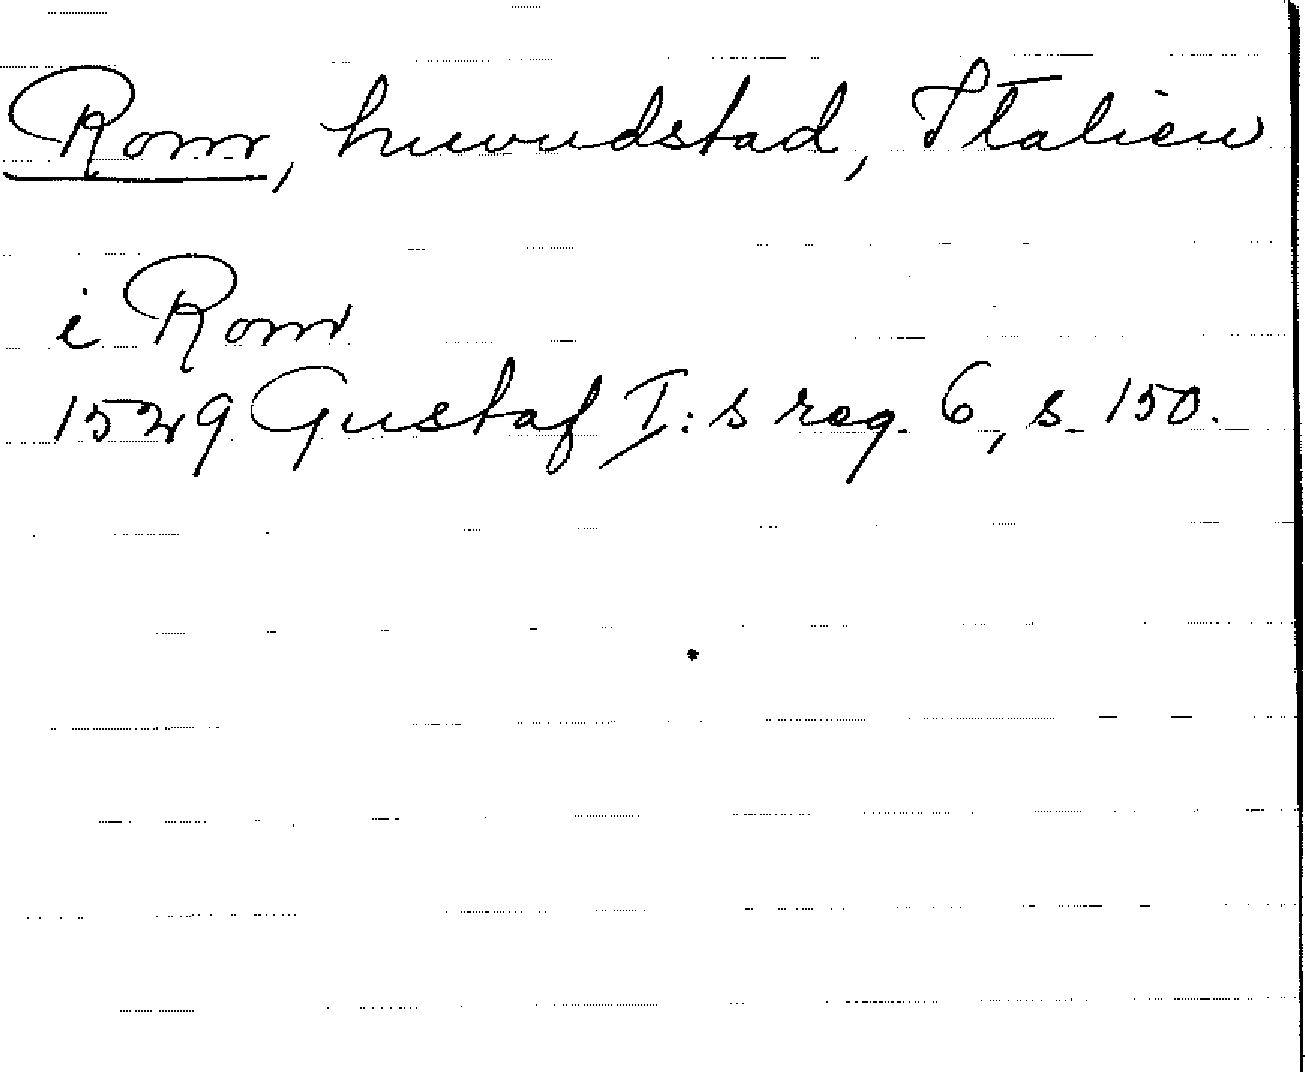 Rom, huvudstad, Italien
i Rom
1529 Gustaf I:s reg. 6, s. 150.